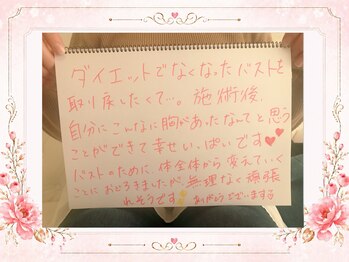 ダイエットでなくなったバストを
取り戻したくて…。施術後、
自分にこんなに胸があったなんてと思う
ことができて幸せいっぱいです♥♥
バストのために体全体から変えていく
ことにおどろきましたが無理なく頑張
れそうです ありがとうございまする